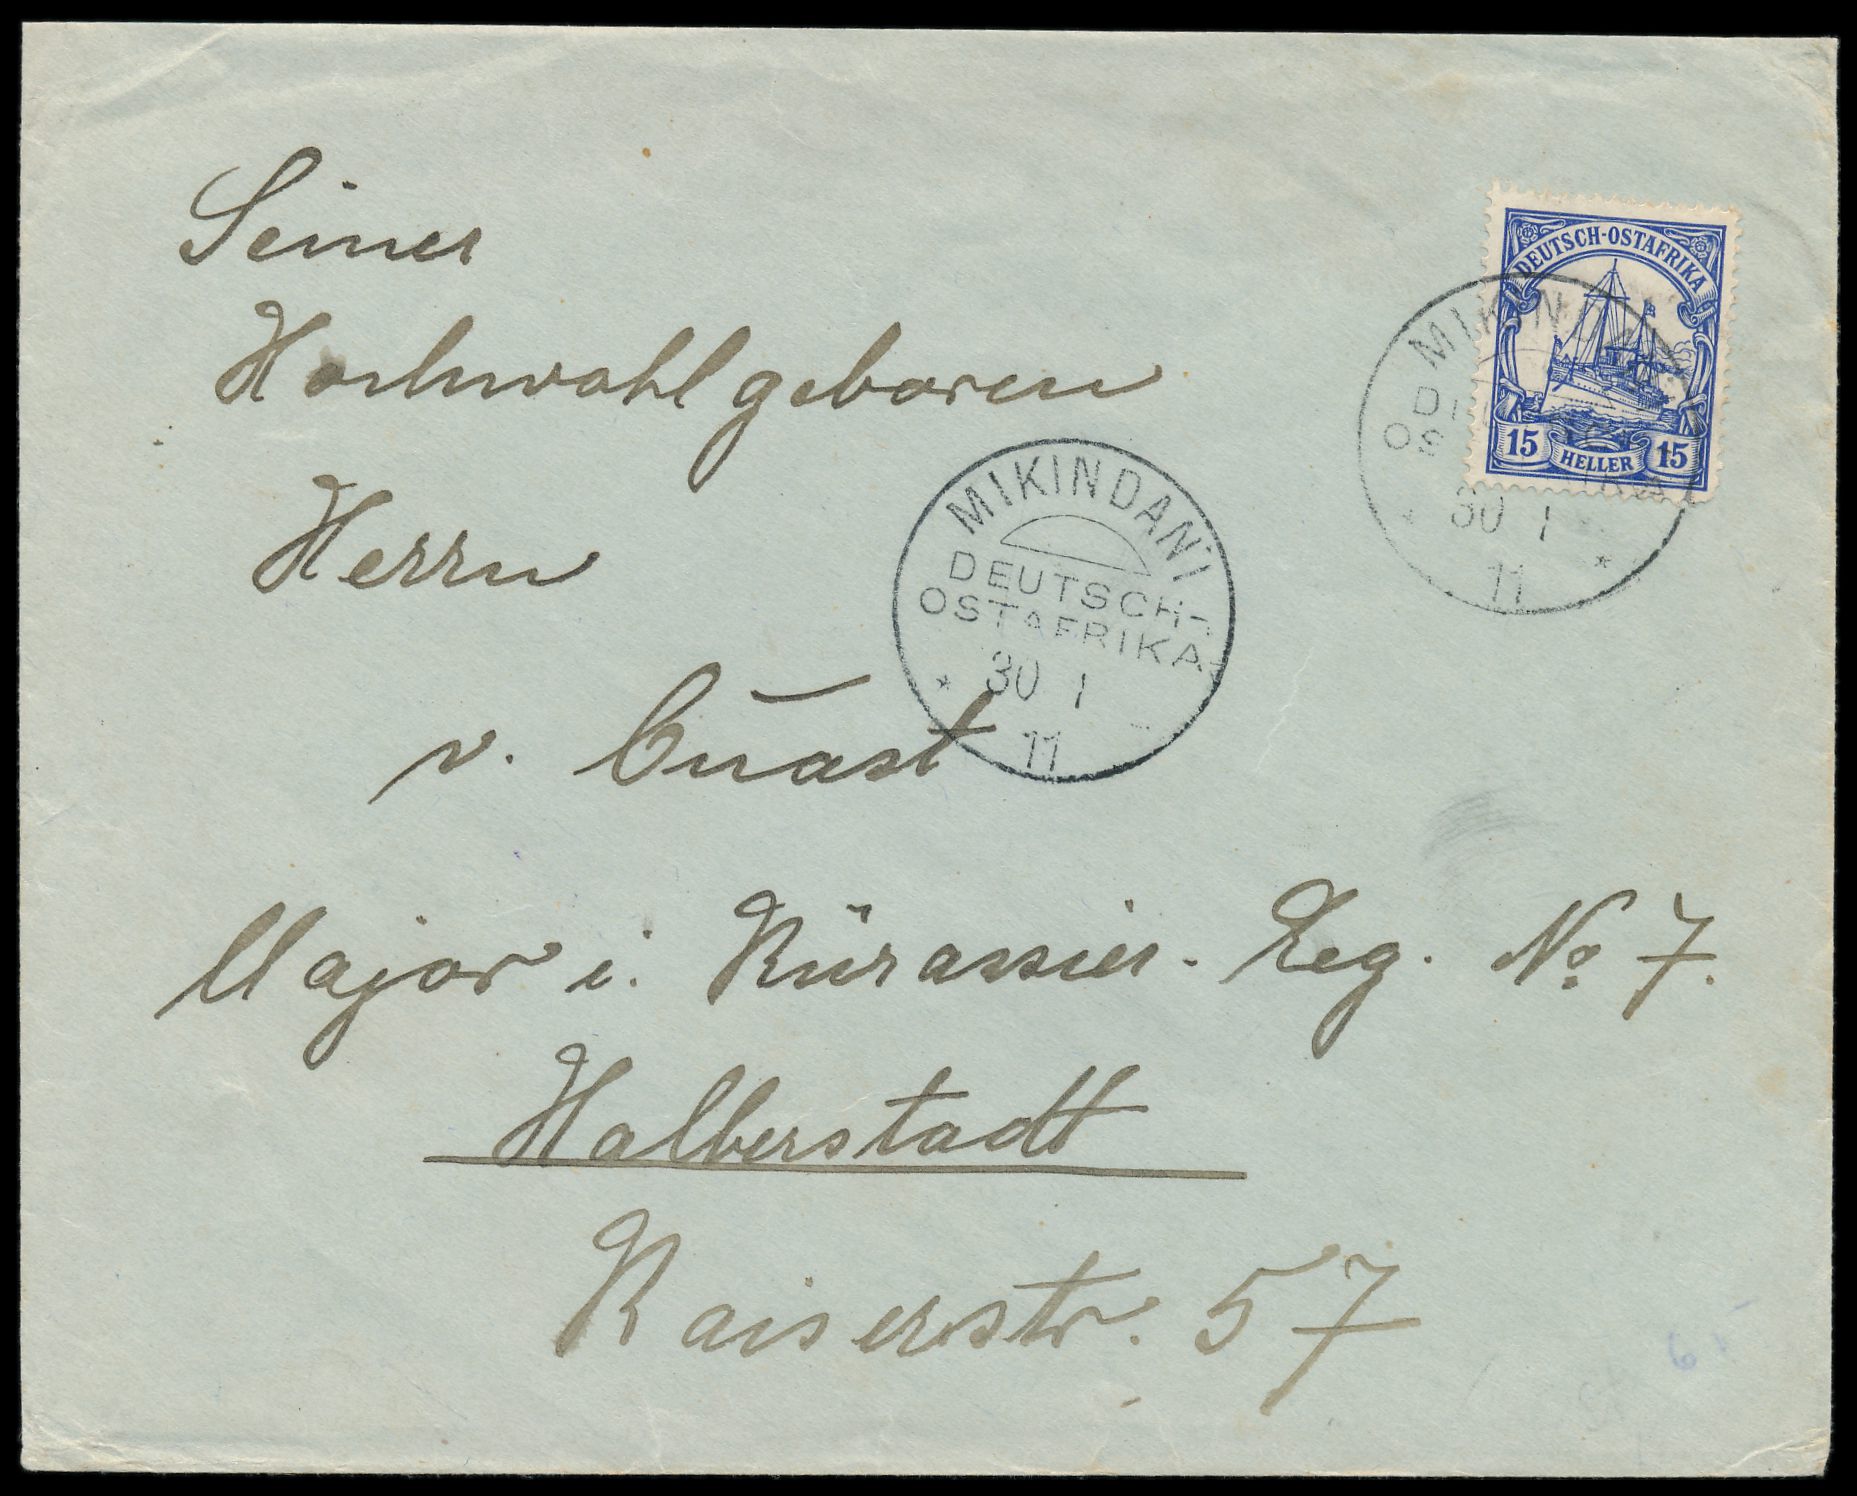 Seiner
Hochwohlgeboren
Herrn
v. Quast
Major i. Kürassier-Reg. No 7.
Halberstadt
Kaiserstr. 57
DEUTSCH-OSTAFRIKA
15 HELLER 15
MIKINDANI
DEUTSCH-
OSTAFRIKA
* 30 1 *
11
MIKINDANI
DEUTSCH-
OSTAFRIKA
* 30 1
11